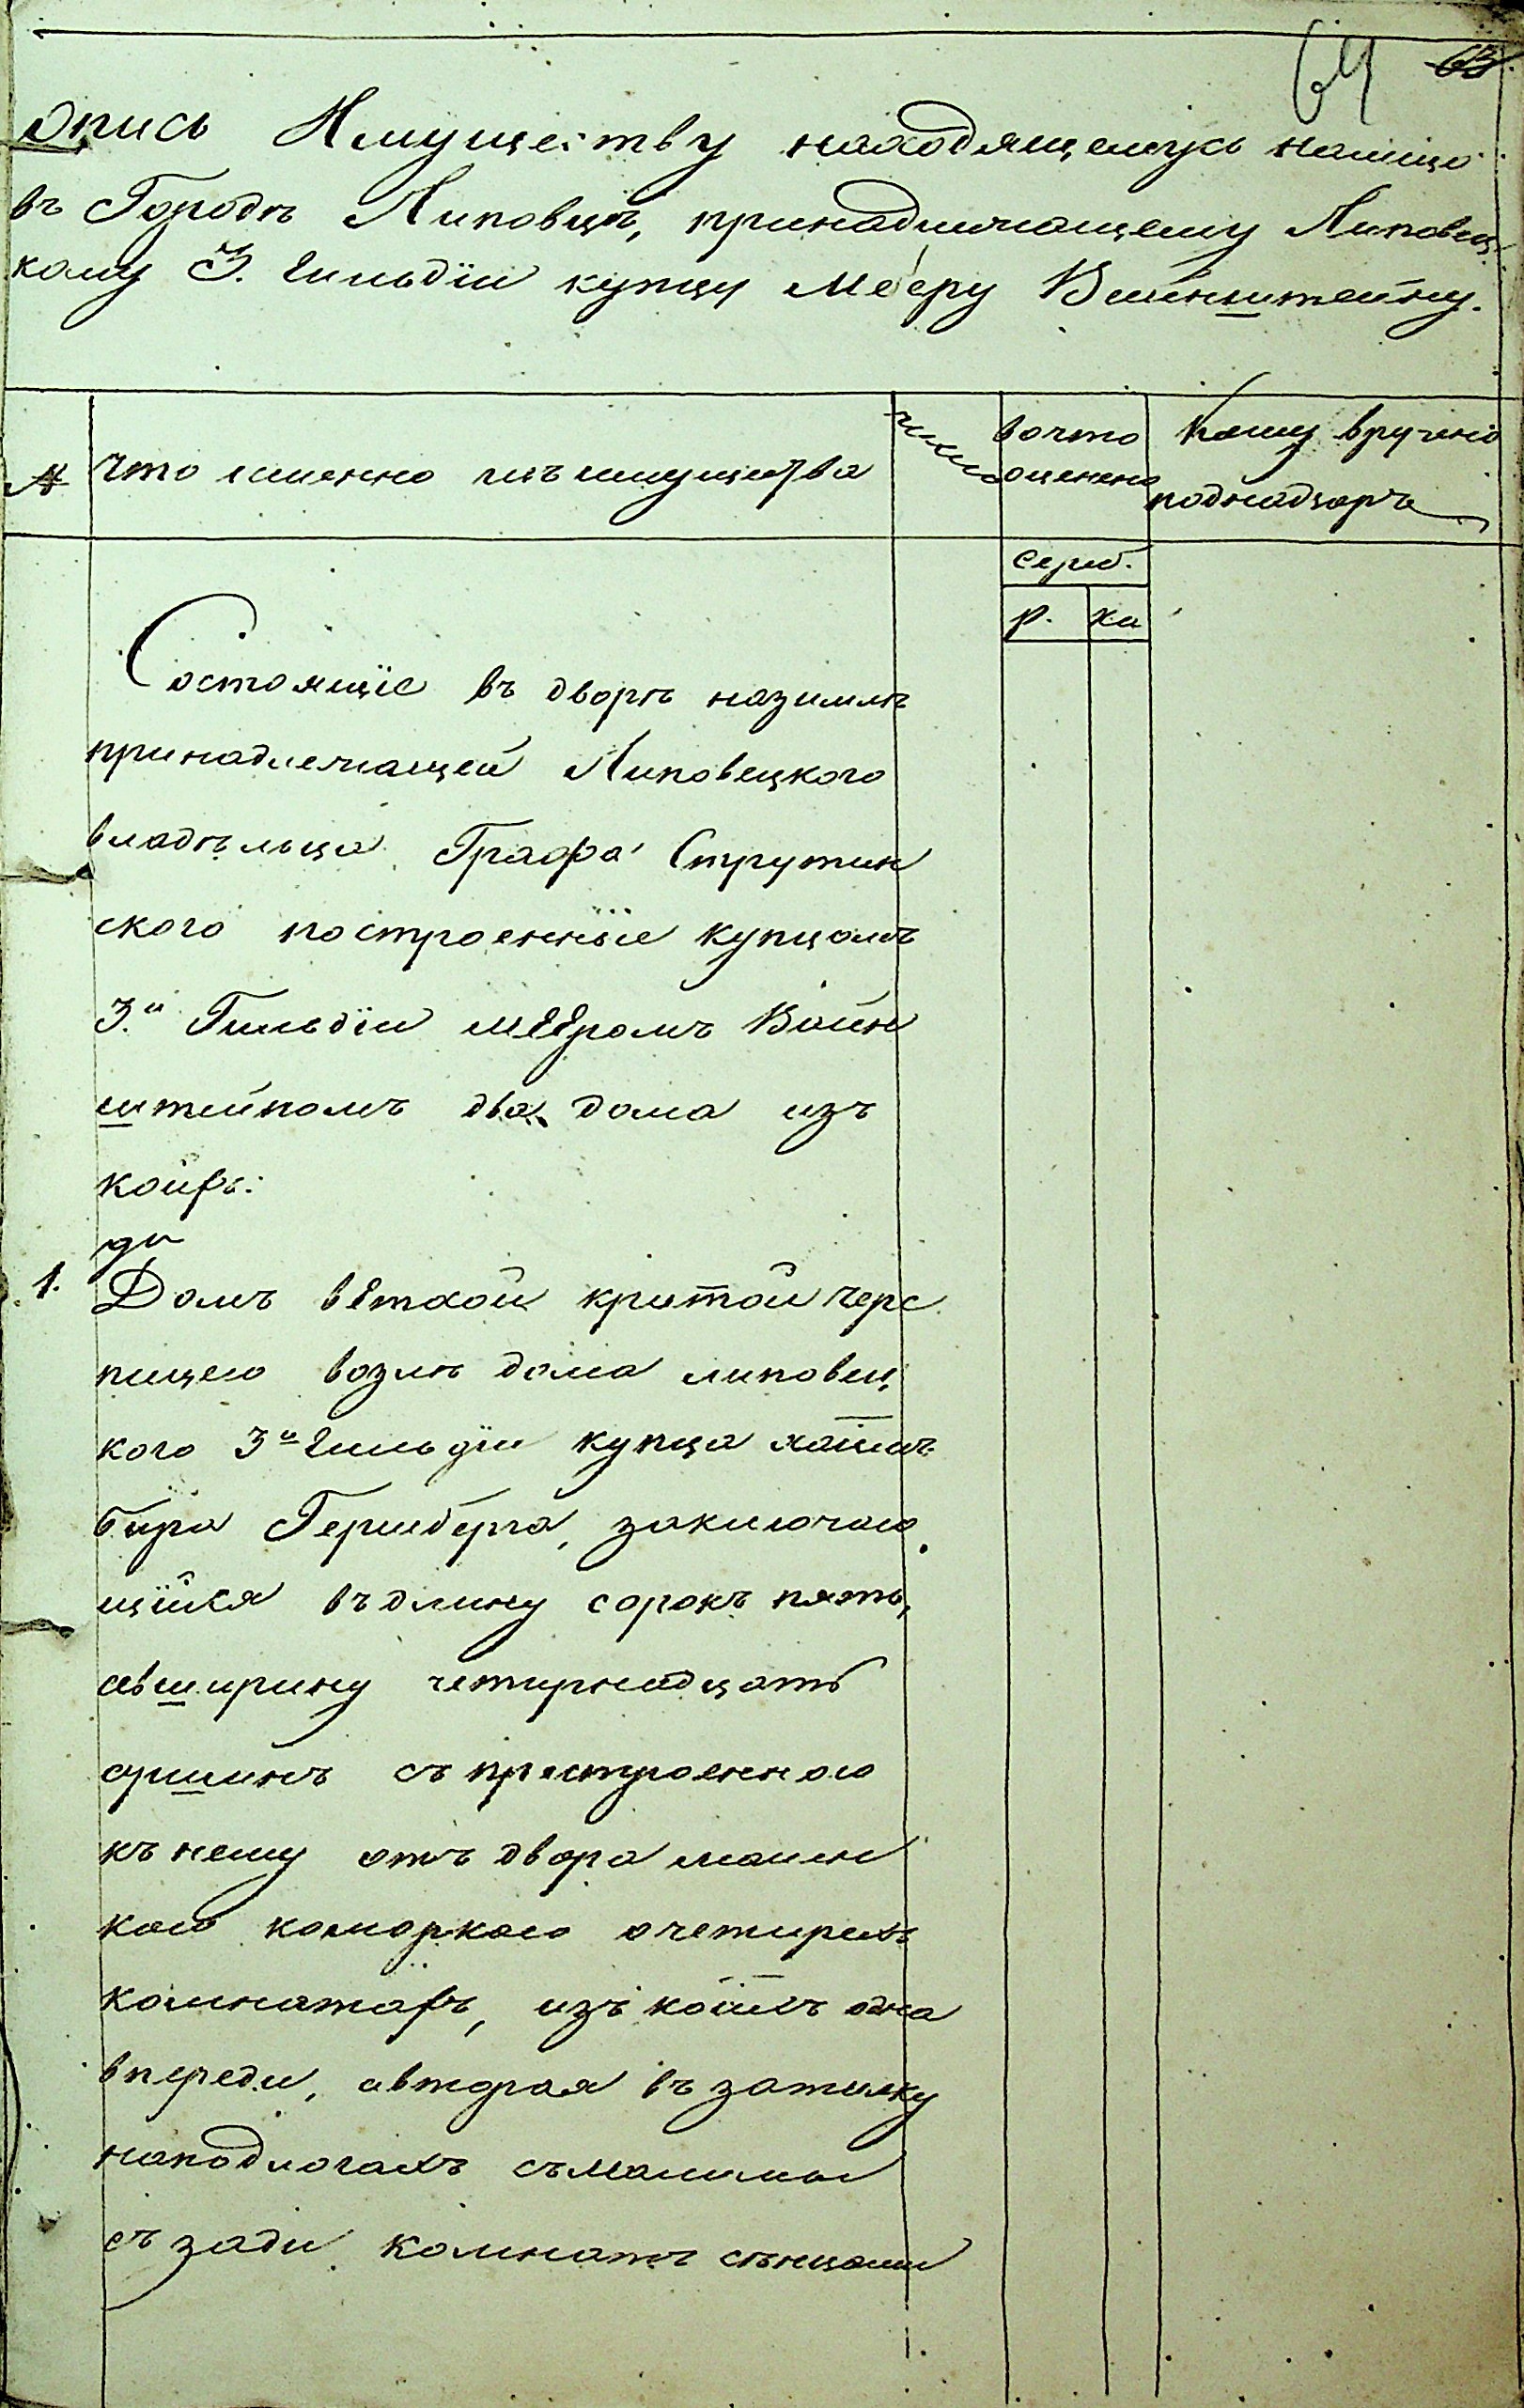 64 63.
Опись Имуществу находящемуся налицо
въ Городѣ Липовцѣ, принадлежащему Липовец
кому 3. Гильдіи купцу Мееру Вейнштейну.
№
что именно изъ имущества
число
вочто
оценено
Кому вручено
поднадзоръ
сереб.
р. ко
Состоящіе въ дворѣ наземлѣ
принадлежащей Липовецкого
владѣльца Графа Струтин
ского построенные купцомъ
3.й Гильдіи Мееромъ Вайн
штейномъ два дома изъ
коихъ:
1. Домъ ветхой критой чере
пицею возлѣ дома липовец
кого 3й Гильдіи купца хаимъ
бира Гершберга, заключаю
щійся въдлину сорокъ пять,
авширину четирнадцать
аршинъ съ пристроенною
къ нему отъ двора мален
кою коморкою очетирехъ
комнатахъ, изъ коихъ одна
впереди, авторая въ затилку
наподлогахъ съмалими
съ зади комнатъ сѣнцами